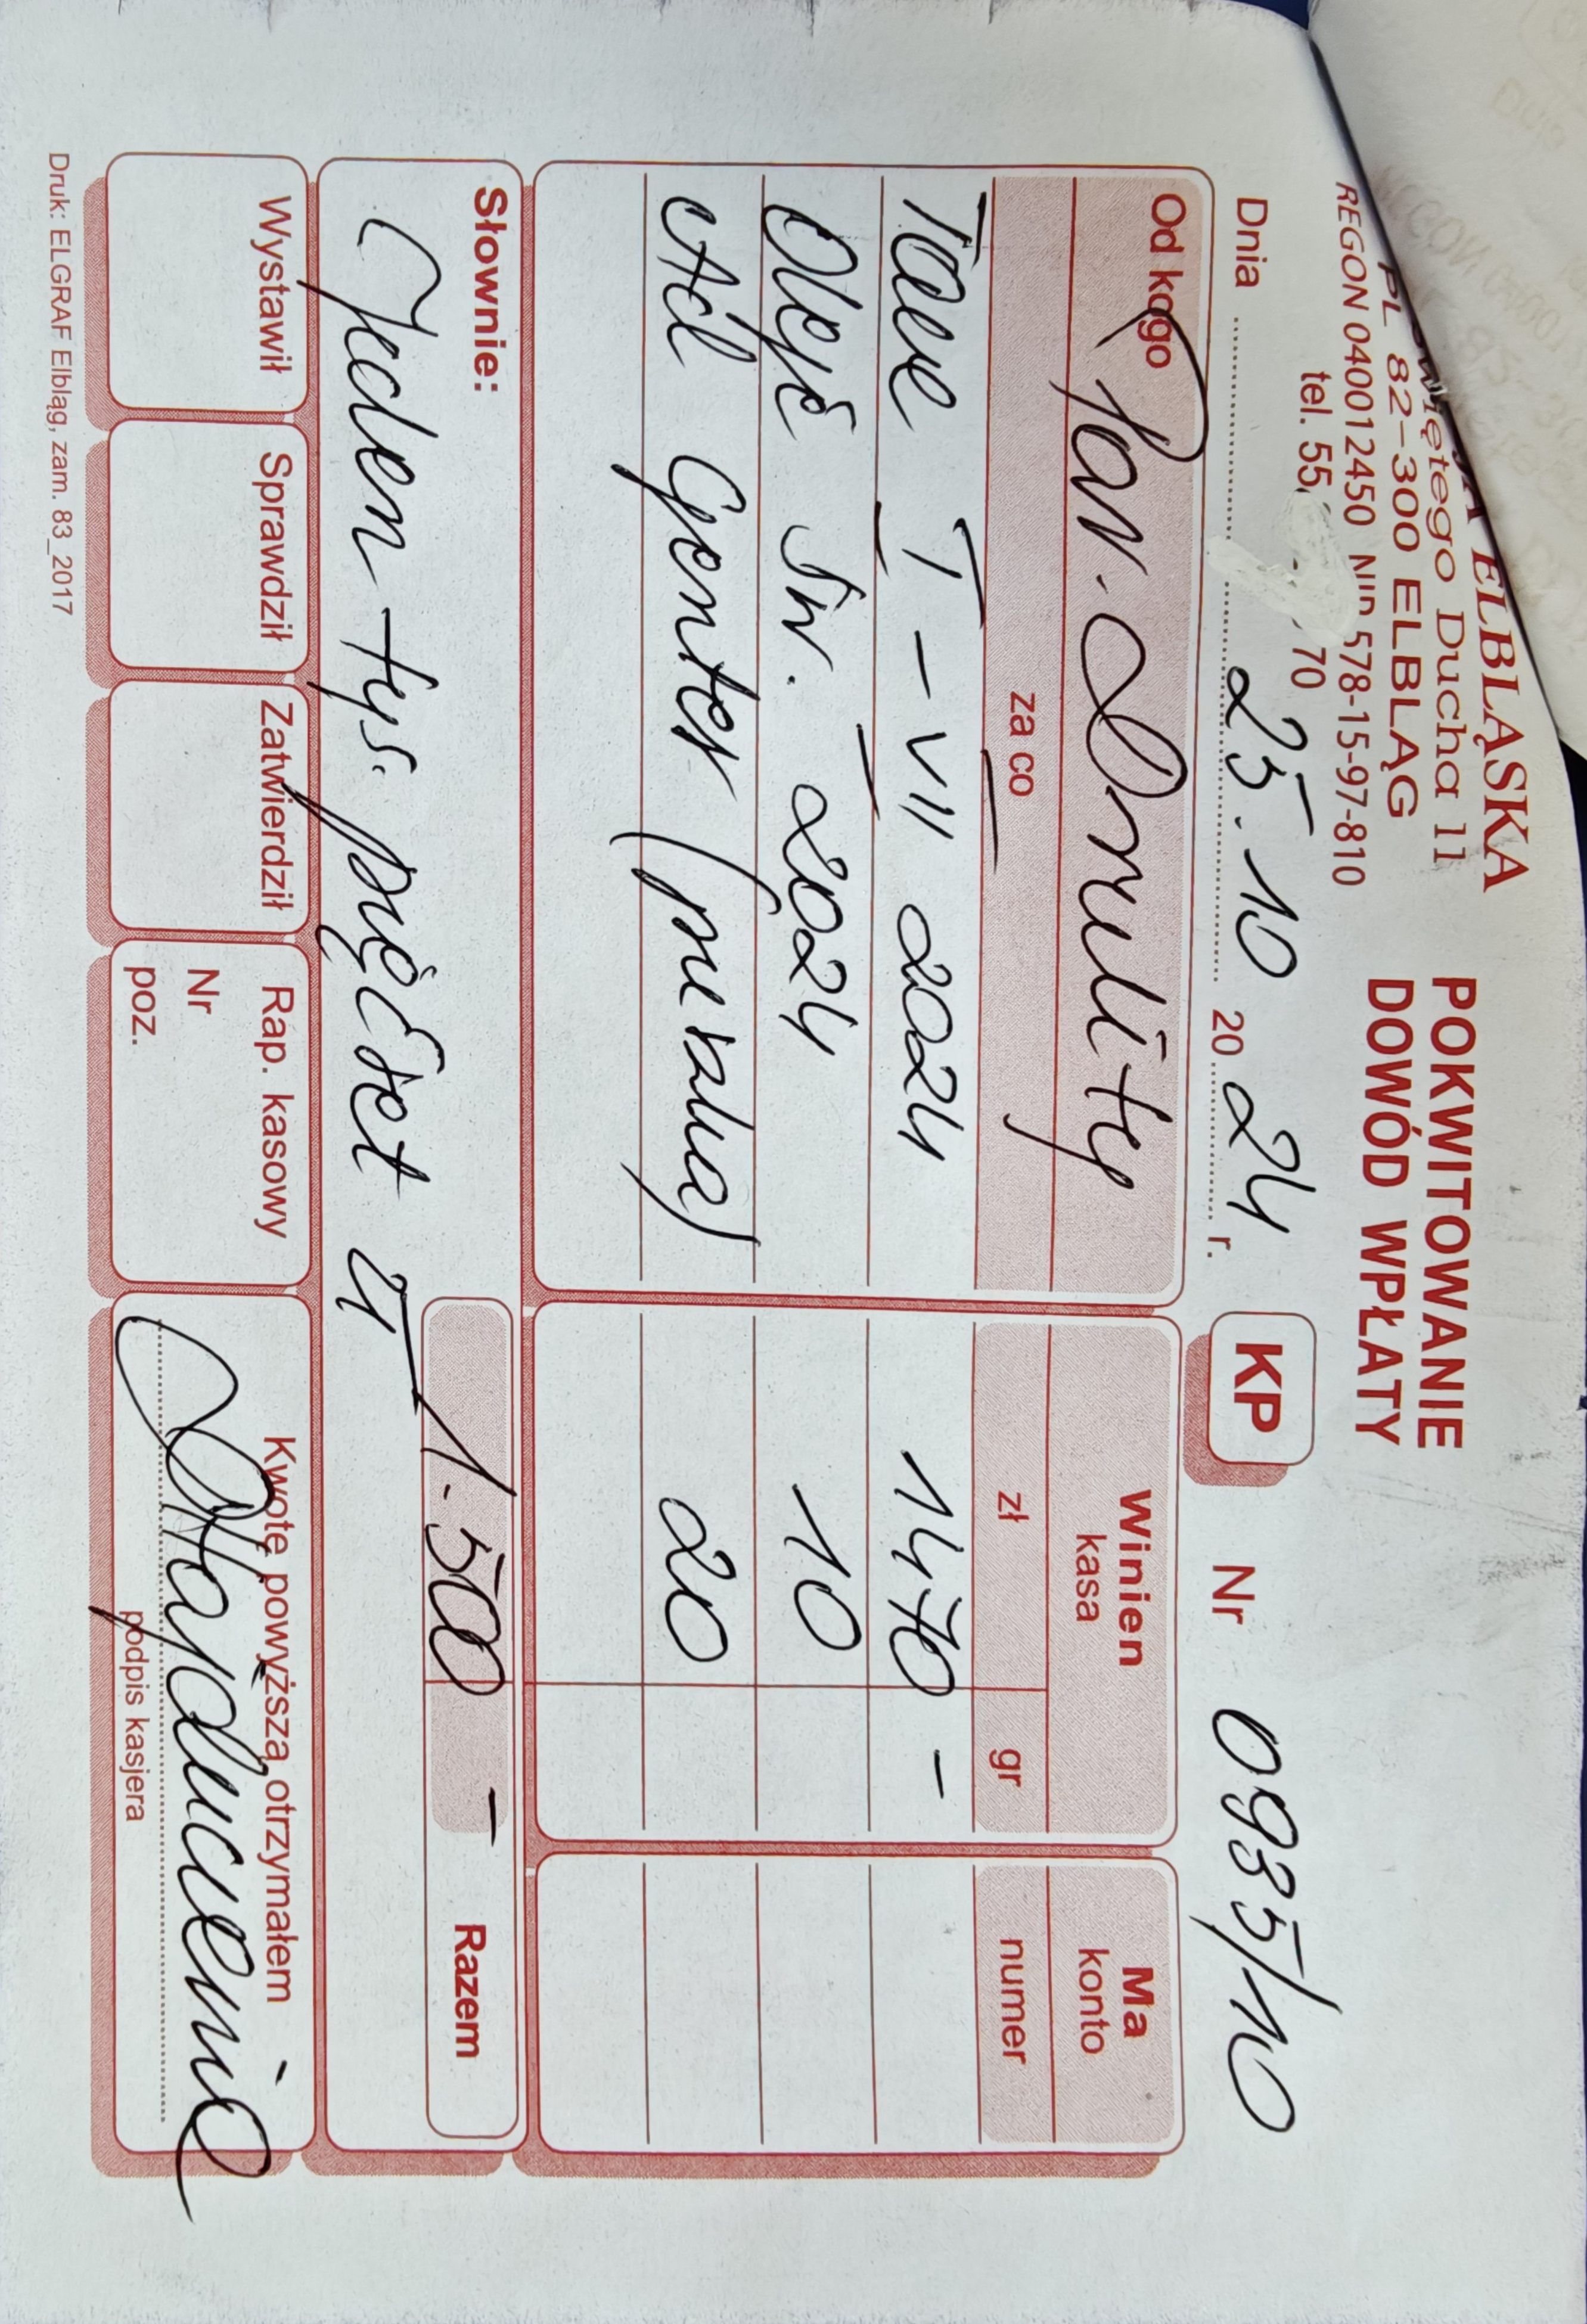 ELBLĄSKA
Świętego Ducha 11
PL 82-300 ELBLĄG
REGON 040012450 NIP 578-15-97-810
tel. 55 70
POKWITOWANIE
DOWÓD WPŁATY
Dnia 25.10 2024 r.
KP
Nr 0935/10
Od kogo Par. Drulity
za co
Winien
kasa
zł gr
Ma
konto
numer
Tace I - VII 2024 1470 -
Oleje św. 2024 10
Ad Gentes 20
Słownie:
Jeden tys. pięćset zł
1.500 -
Razem
Wystawił
Sprawdził
Zatwierdził
Rap. kasowy
Nr
poz.
Kwotę powyższą otrzymałem
podpis kasjera
Druk: ELGRAF Elbląg, zam. 83_2017